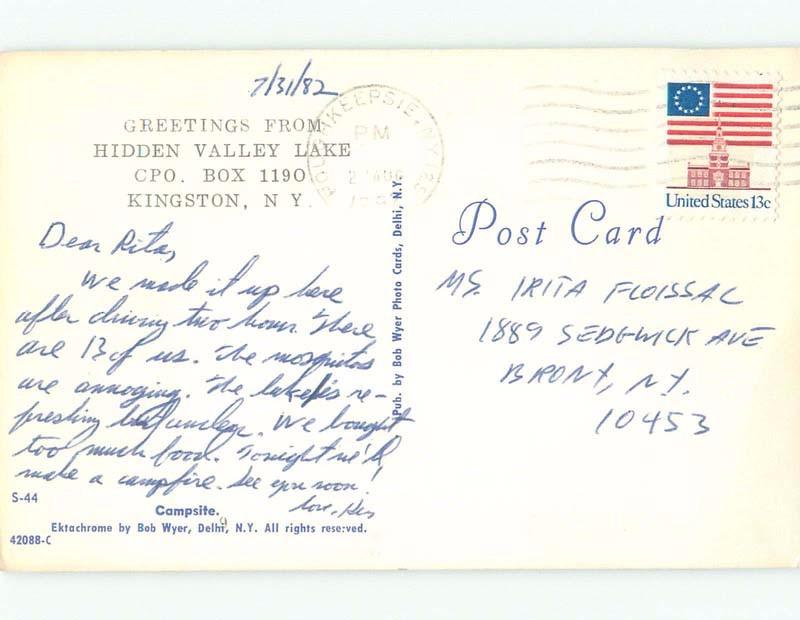 7/31/82
GREETINGS FROM
HIDDEN VALLEY LAKE
CPO. BOX 1190
KINGSTON, N Y.
POUGHKEEPSIE, NY
PM
2 AUG
United States 13c
Post Card
Dear Rita,
We made it up here
after driving two hours. There
are 13 of us. The mosquitos
are annoying. The lake is re-
freshing but unclear. We bought
too much food. Tonight we'll
make a campfire. See you soon!
love,
MS. IRITA FLOISSAC
1889 SEDGWICK AVE
BRONX, NY.
10453
Pub. by Bob Wyer Photo Cards, Delhi, N.Y.
S-44
Campsite.
Ektachrome by Bob Wyer, Delhi, N.Y. All rights reserved.
42088-C